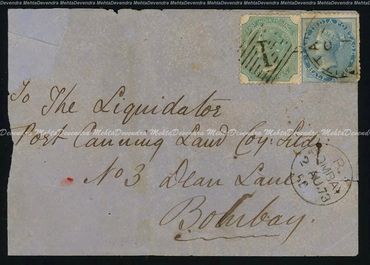 Devendra MehtaDevendra MehtaDevendra MehtaDevendra MehtaDevendra MehtaDevendra
1
To The Liquidator
Devendra MehtaDevendra MehtaDevendra MehtaDevendra MehtaDevendra MehtaDevendra
Port Canning Land Coy:
No 3 Dean Lane
Bombay.
BOMBAY
2 AU 73